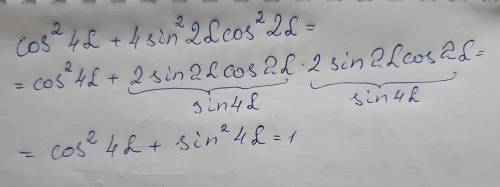 cos² 4α + 4 sin² 2α cos² 2α =
= cos² 4α + 2 sin 2α cos 2α · 2 sin 2α cos 2α =
sin 4α sin 4α
= cos² 4α + sin² 4α = 1